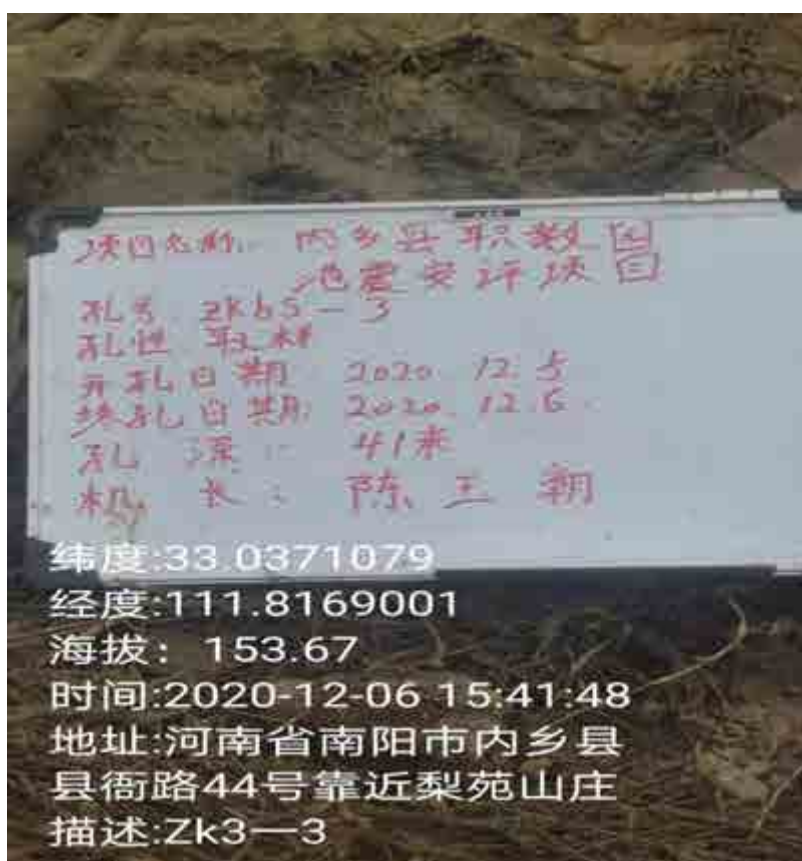 项目名称: 内乡县职教园
地震安评项目
孔号 zkbs-3
孔性 取样
开孔日期 2020.12.5
终孔日期: 2020.12.6.
孔深: 41米
机长: 陈王朝
纬度:33.0371079
经度:111.8169001
海拔: 153.67
时间:2020-12-06 15:41:48
地址:河南省南阳市内乡县
县衙路44号靠近梨苑山庄
描述:Zk3—3